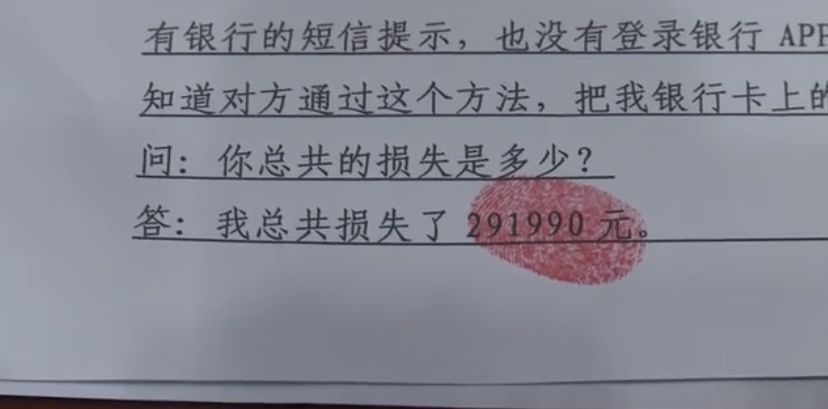 有银行的短信提示，也没有登录银行 APP
知道对方通过这个方法，把我银行卡上的
问：你总共的损失是多少？
答：我总共损失了 291990 元。